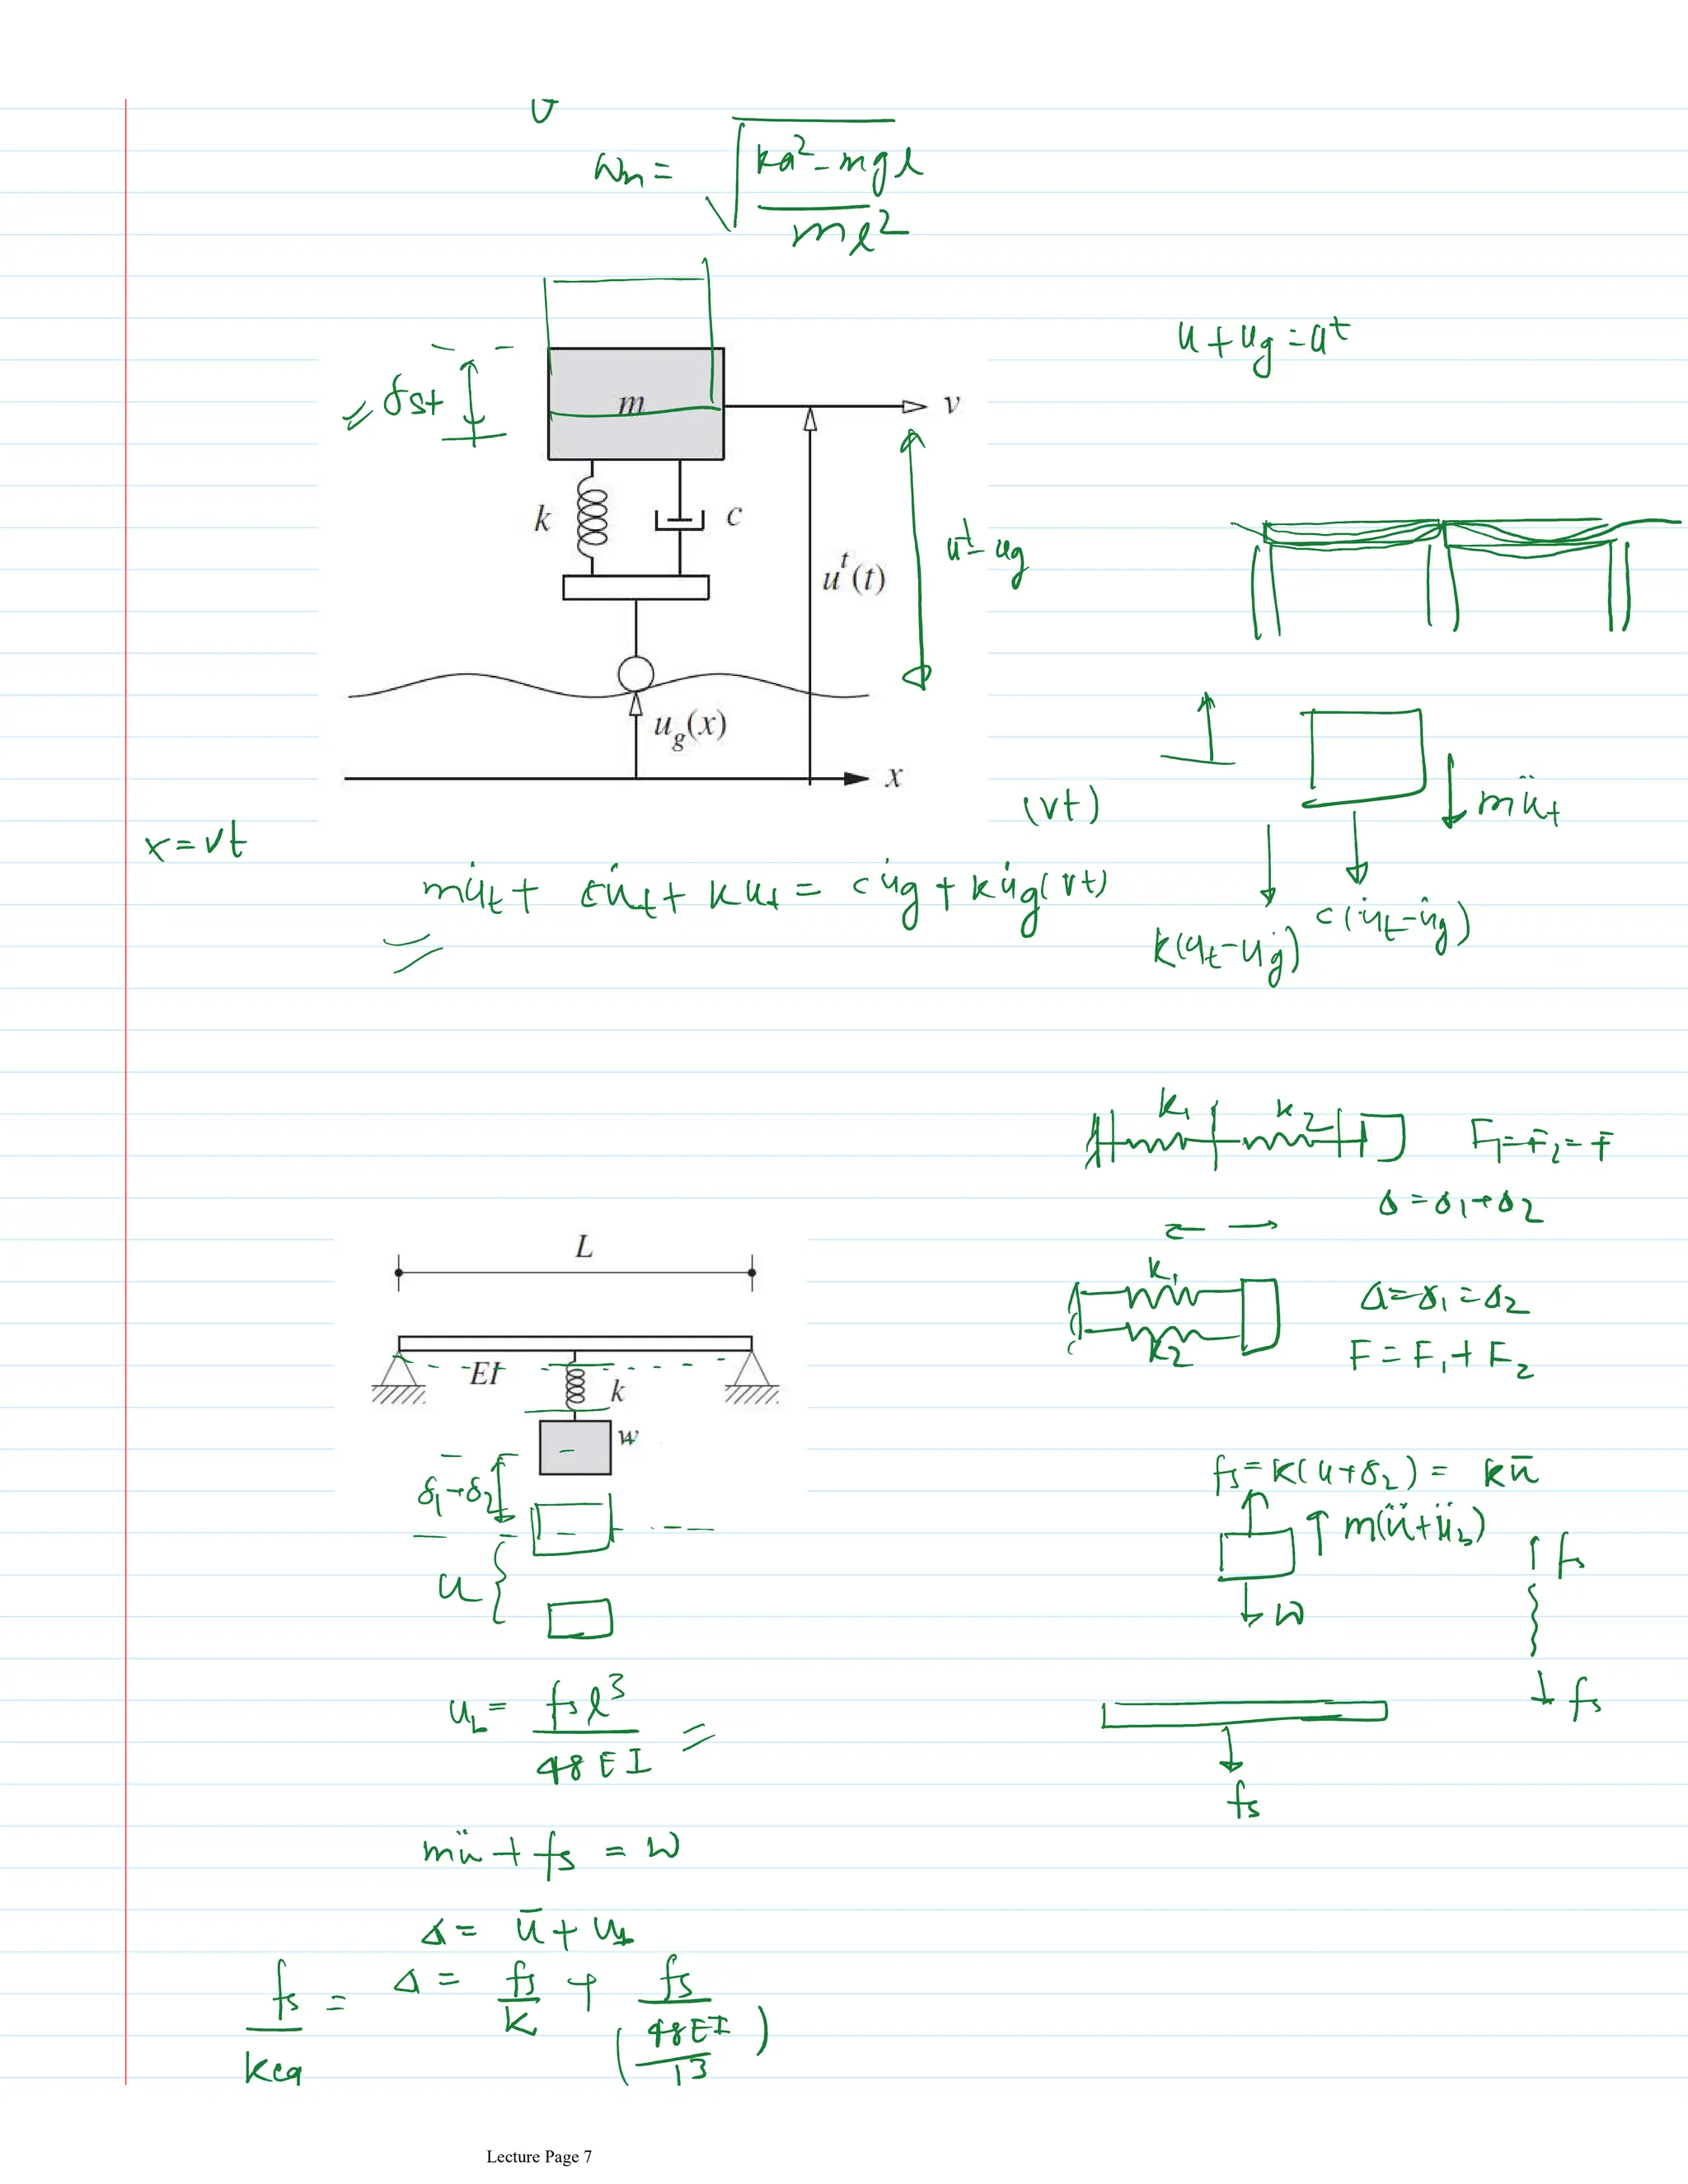 ωn = √((ka² - mgl) / (ml²))
u + ug = u^t
= δst
m
v
k
c
u^t(t)
u^t - ug
ug(x)
x
(vt)
mü_t
x = vt
mü_t + cu̇_t + ku_t = cu̇g + ku̇g(vt)
k(u_t - u̇g)
c(u̇_t - u̇g)
k1 k2
F1 = F2 = F
Δ = Δ1 + Δ2
L
k1
k2
Δ = δ1 = Δ2
F = F1 + F2
EI
k
w
δ1 + δ2
u
fs = k(u + δ2) = kū
m(ü + üb)
W
fs
fs
fs
ub = fs l³ / 48EI =
mü + fs = W
Δ = ū + ub
fs / keq = Δ = fs / k + fs / (48EI / l3)
Lecture Page 7